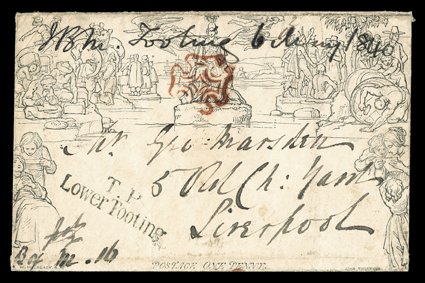 Tooting 6 May 1840
Mr. Geo: Marsden
5 Old Ch: Yard
Liverpool
T. P
Lower Tooting
16
POSTAGE ONE PENNY.